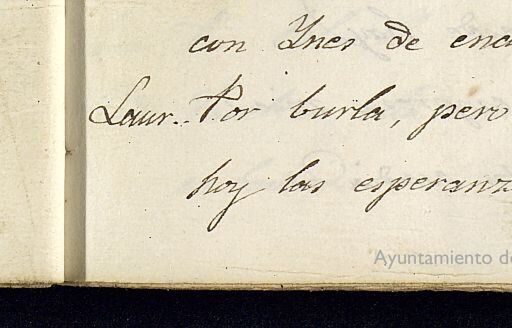 con Ynes de ena
Laur. Por burla, pero
hoy las esperanz
Ayuntamiento de